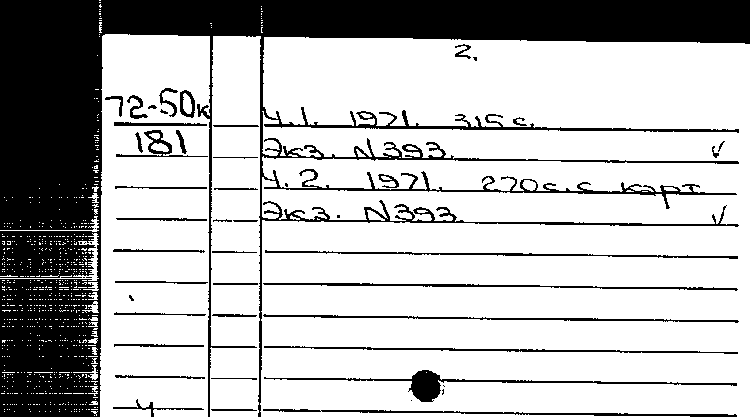 2.
72-50к Ч.1. 1971. 315 с.
181 Экз. N393. ✓
Ч.2. 1971. 270с.с карт
Экз. N393. ✓
4